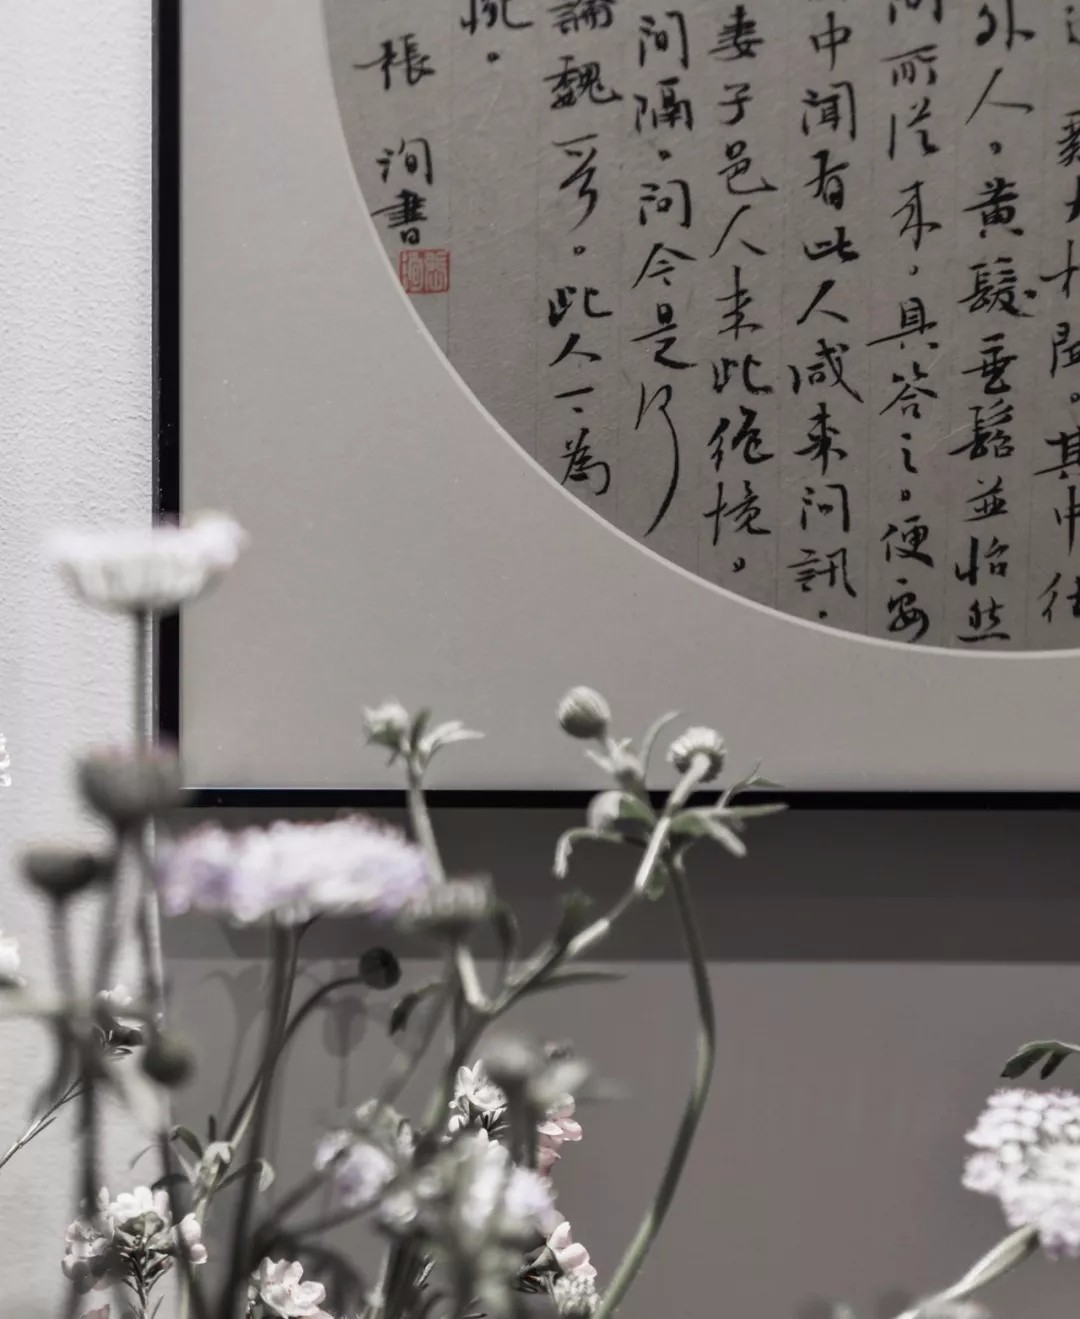 其中往
外人。黃髮垂髫並怡然
問所從來。具答之。便要
中聞有此人咸來問訊。
妻子邑人來此絕境。
間隔。問今是何
論魏晉。此人一一為
惋。
張洵書